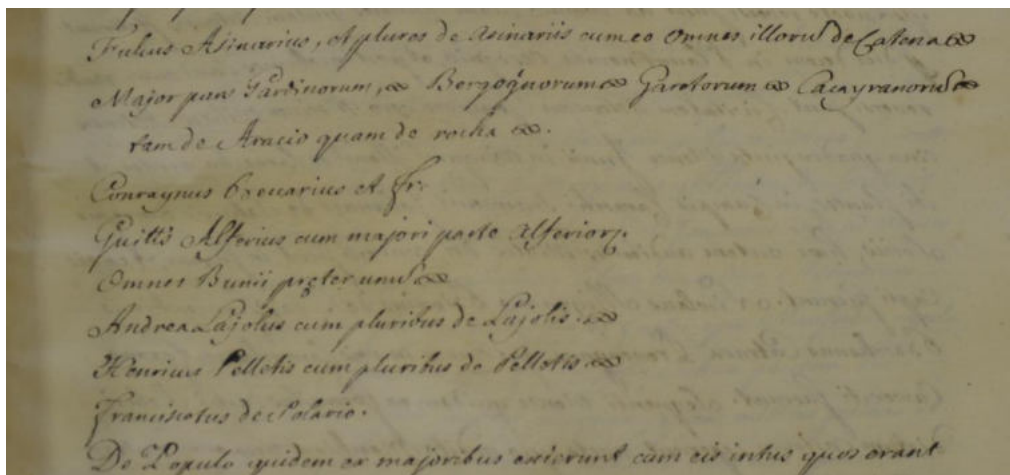 Fulcus Asinarius, et plures de Asinariis cum eo omnes illorū de Catena
Major pars Gardinorum, Bergognorum Garetorum Cacayranorū
tam de Aracio quam de rocha
Conraynus Brevarius et fr:
Guill's Alferius cum majori parte Alferior.
Omnes Bunii pręter unū
Andrea Lajolus cum pluribus de Lajolis.
Henrius Pelletis cum pluribus de Pelletis.
Franciscotus de Solario.
De Populo quidem ex majoribus exierunt cum eis intus quos erant